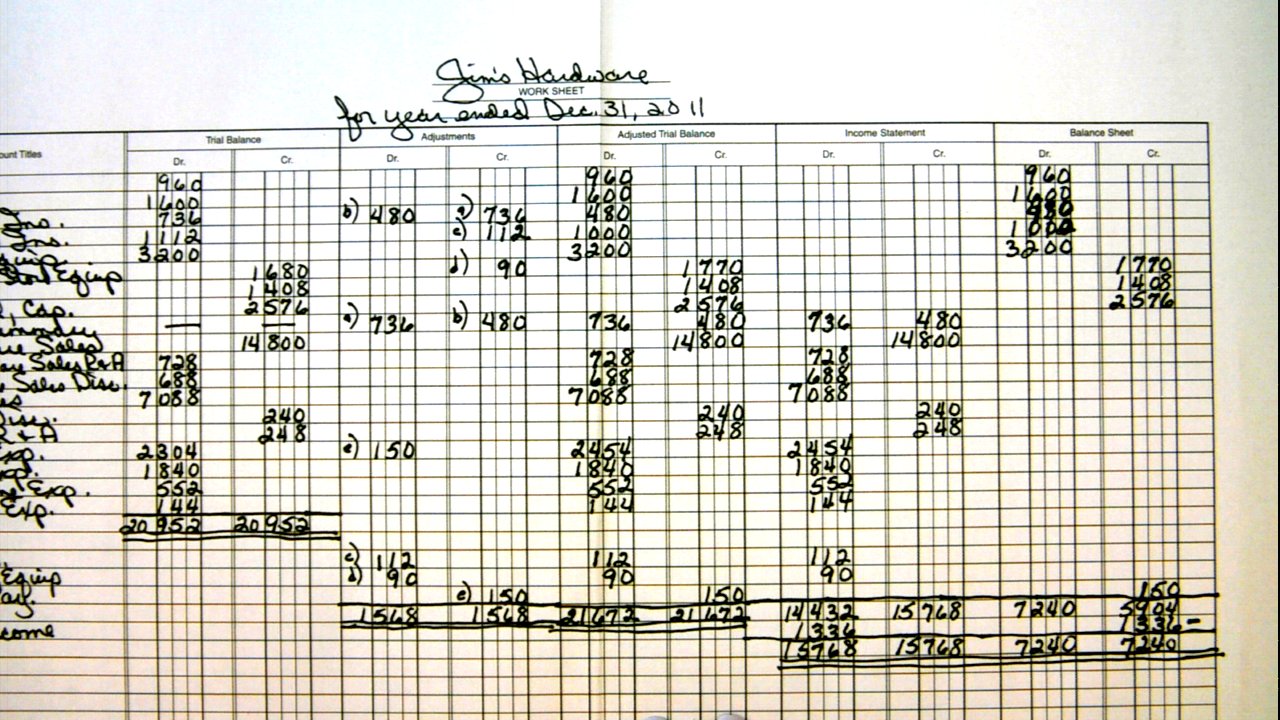 Jim's Hardware
WORK SHEET
for year ended Dec. 31, 2011
ount Titles Trial Balance Adjustments Adjusted Trial Balance Income Statement Balance Sheet
Dr. Cr. Dr. Cr. Dr. Cr. Dr. Cr. Dr. Cr.
960 960 960
1600 1600 1600
Ins. 736 b) 480 a) 736 480 480
Ins. 1112 c) 112 1000 1000
quip. 3200 3200 3200
Store Equip 1680 d) 90 1770 1770
1408 1408 1408
Cap. 2576 2576 2576
ummary — — a) 736 b) 480 736 480 736 480
are Sales 14800 14800 14800
are Sales R&A 728 728 728
Sales Disc. 688 688 688
es 7088 7088 7088
Disc. 240 240 240
R & A 248 248 248
xp. 2304 e) 150 2454 2454
xp. 1840 1840 1840
Exp. 552 552 552
Exp. 144 144 144
20952 20952
c) 112 112 112
Equip d) 90 90 90
ay. e) 150 150 150
1568 1568 21672 21672 14432 15768 7240 5904
come 1336 1336 -
15768 15768 7240 7240